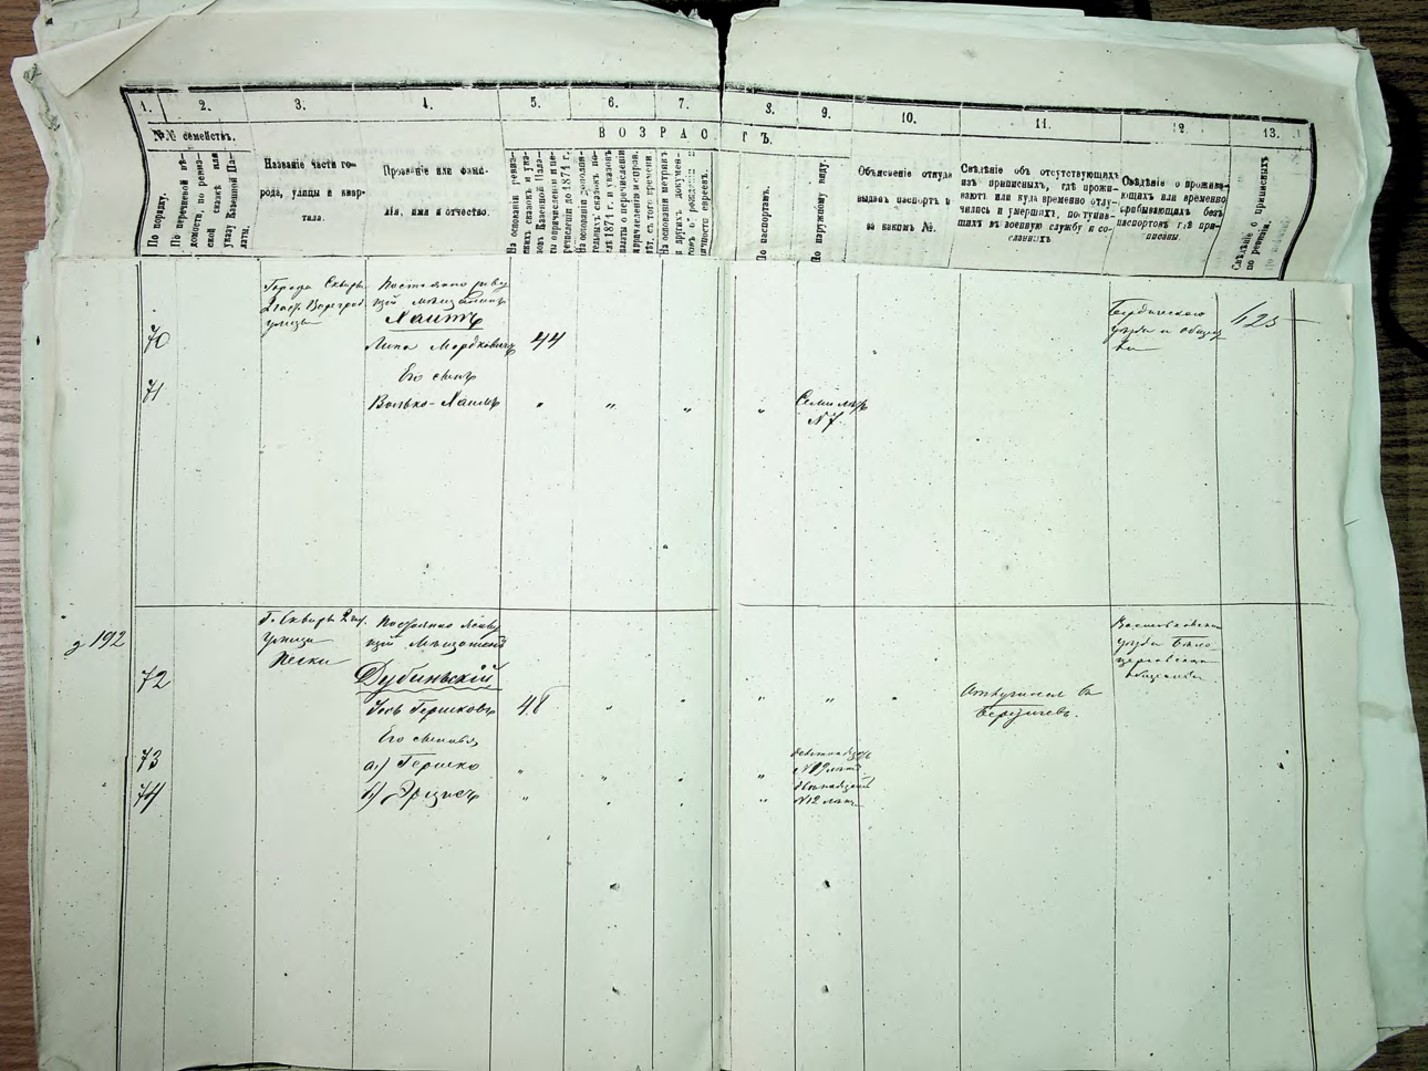 1.
2.
3.
4.
5.
6.
7.
8.
9.
10.
11.
12.
13.
№№ семействъ.
ВОЗРАС
ТЪ.
По порядку.
По перечневой вѣ-
домости, по ревиз-
ской сказкѣ или
указу Казенной Па-
латы.
Названіе части го-
рода, улицы и квар-
тала.
Прозваніе или фами-
лія, имя и отчество.
На основаніи ревиз-
скихъ сказокъ и ука-
зовъ Казенной Пала-
ты о причисленіи и пе-
речисленіи до 1871 г.
На основаніи дополни-
тельныхъ сказокъ по-
слѣ 1871 г. и указовъ
палаты о перечисленіи
На основаніи метрикъ
и другихъ докумен-
товъ о рожденіи и
личности евреевъ.
По паспортамъ.
По наружному виду.
Объясненіе откуда
выданъ паспортъ и
за какимъ №.
Свѣдѣніе объ отсутствующихъ
изъ приписныхъ, гдѣ прожи-
ваютъ или куда временно отлу-
чились и умершихъ, поступив-
шихъ въ военную службу и со-
сланныхъ
Свѣдѣніе о прожива-
ющихъ или временно
пребывающихъ безъ
паспортовъ гдѣ при-
писаны.
Свѣдѣніе о приписныхъ
по ревизіи.
Города Сквиры
улица
мѣщанинъ
Хаитъ
70
Липа Мордковичъ
44
Бердичевскаго
уѣзда
423
71
Его сынъ
Волько-Хаимъ
" " " "
Семи лѣтъ
№ 7.
192
Г. Сквира 2 ч.
улица
Пески
Мѣщанинъ
Дубинскій
72
Іось Гершковъ
48
" " " "
Отлучился въ
Бердичевъ.
Васильковскаго
уѣзда Бѣло
церковскаго
Его сыновья
73
а) Гершко
" " " "
№19 лѣтъ
74
б)
" " " "
№12 лѣтъ